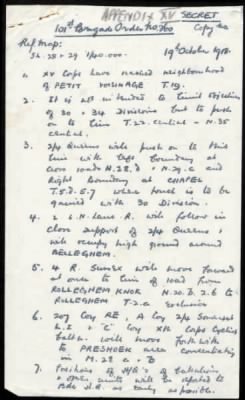 APPENDIX XV SECRET
101st Brigade Order No 200
Copy No
Ref Map:
Sh. 28 + 29 1/40.000. 19th October 1918.
1. XV Corps have reached neighbourhood
of PETIT VOISINAGE T.19.
2. It is all intended to limit objective
of 30 + 34 Divisions but to push
on to line T.22.central - N.35
central.
3. 2/4 Queens will push on to this
line with left boundary at
cross roads N.28.d + N.29.c and
Right boundary at CHAPEL
T.5.d.5.7 where touch is to be
gained with 30 Division.
4. 2 L.N. Lanc. R. will follow in
close support of 2/4 Queens &
will occupy high ground around
BELLEGHEM.
5. 4 R. Sussex will move forward
at once to line of road from
ROLLEGHEM KNOK N.20.d.2.6 to
ROLLEGHEM T.2.a exclusive
6. 207 Coy RE, A Coy 2/4 Somerset
L.I & "C" Coy XIX Corps Cyclist
Battn. will move forthwith
to PRESHOEK area concentrating
in M.28 a + b
7. Positions of H.Q's of battalions
& other units will be reported to
Bde H.Q. as early as possible.